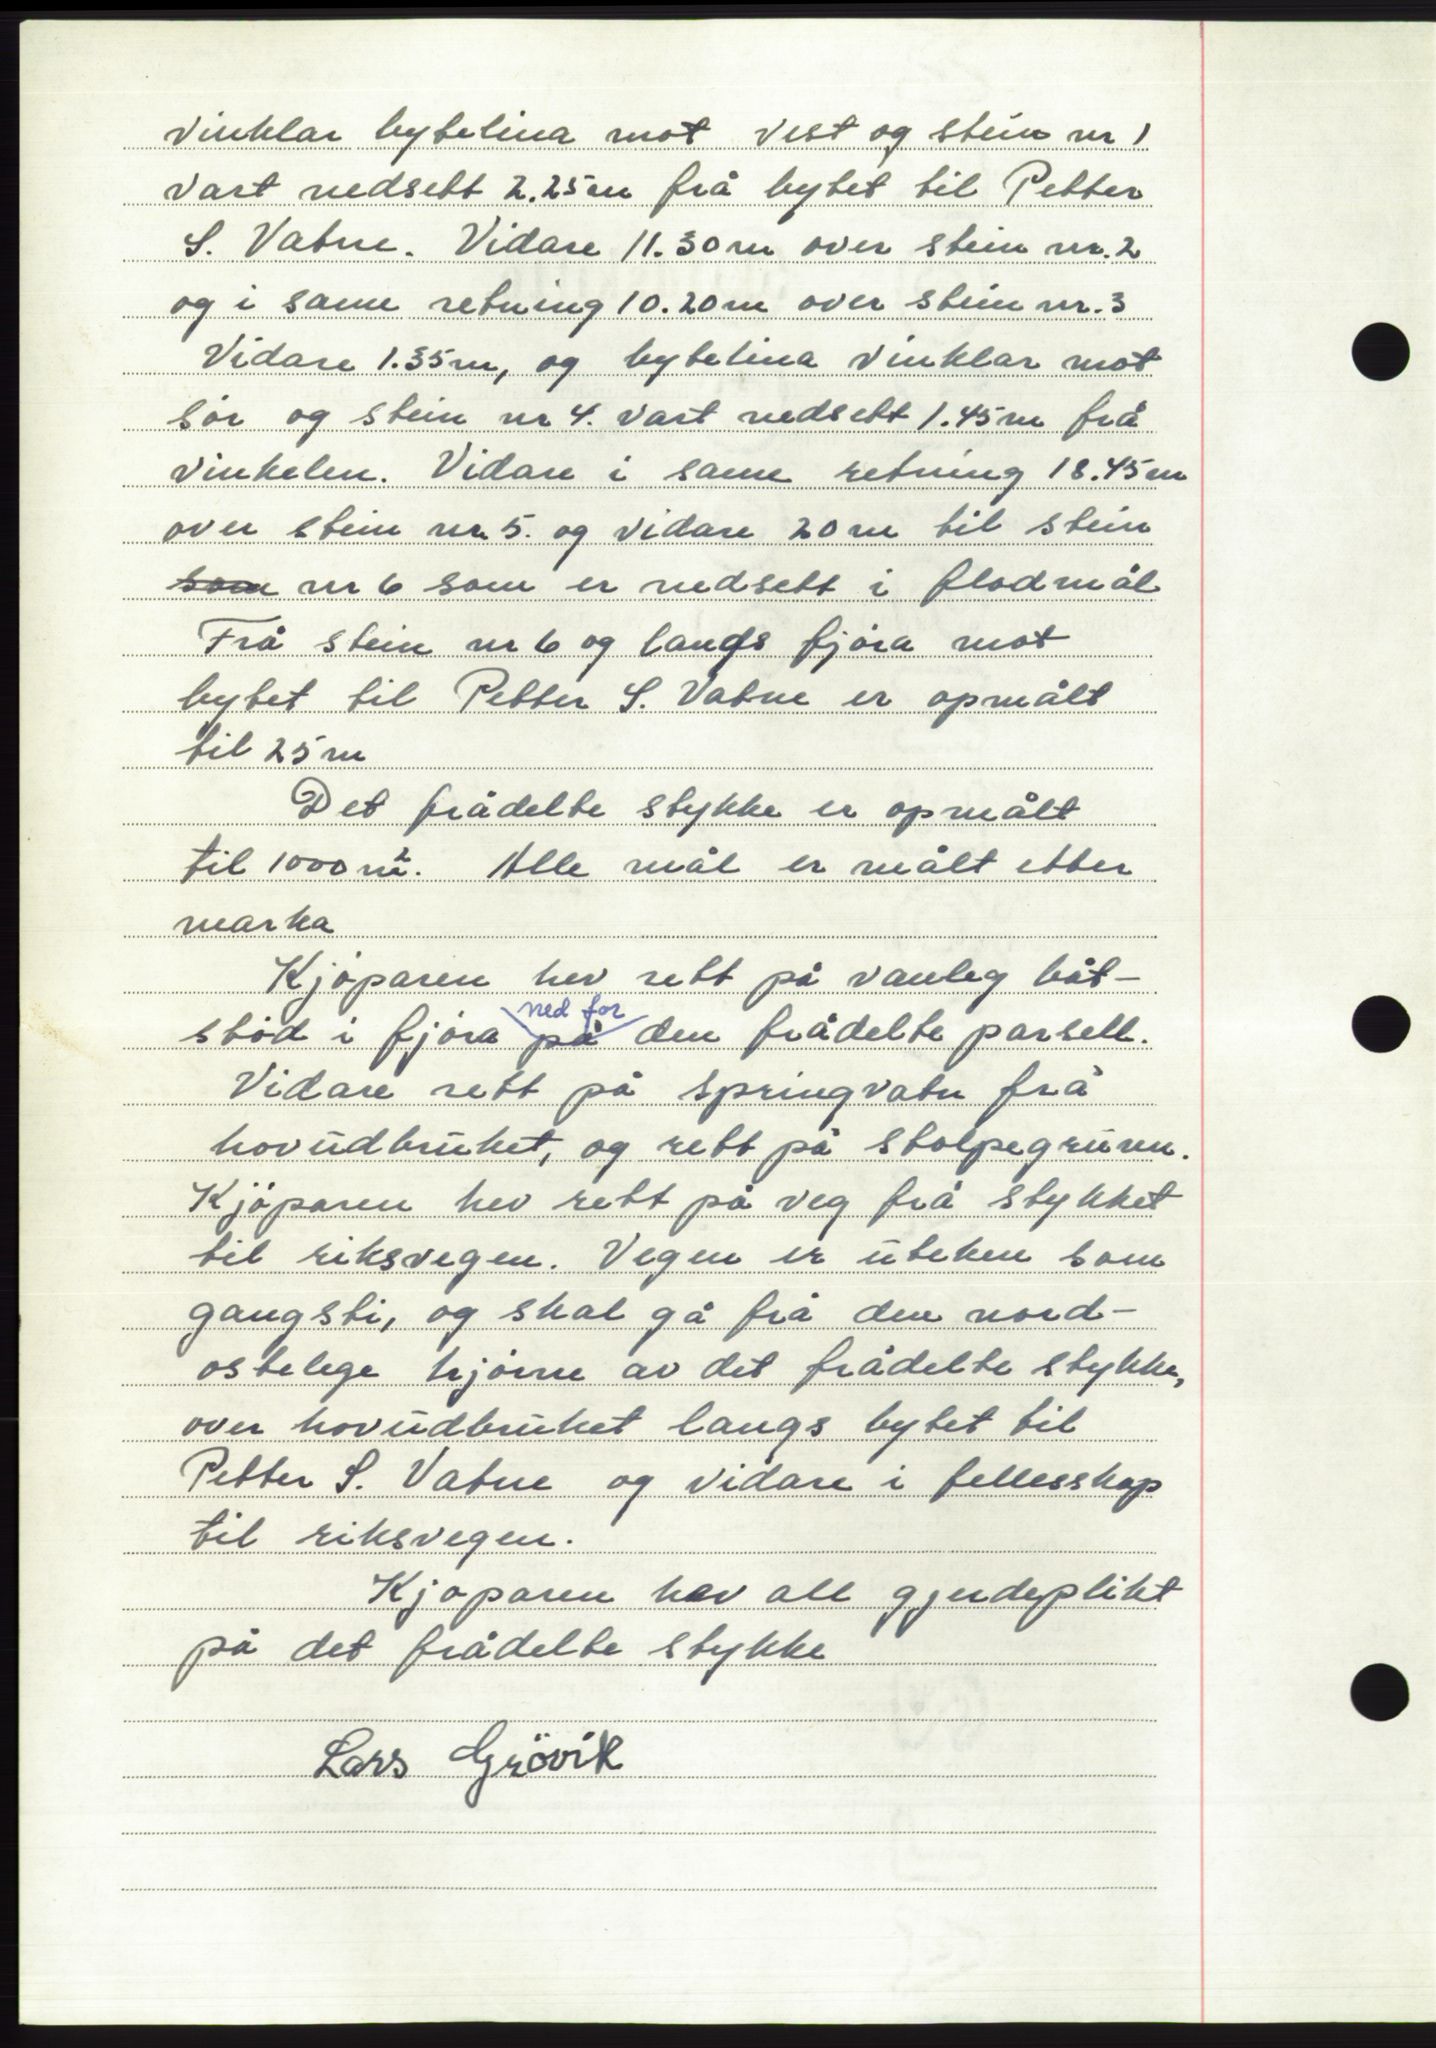 vinklar bytelina mot vest og stein nr 1
vart nedsett 2.25m frå bytet til Petter
S. Vatne. Vidare 11.30m over stein nr. 2
og i same retning 10.20m over stein nr. 3
Vidare 1.35m, og bytelina vinklar mot
sör og stein nr 4. vart nedsett 1.45m frå
vinkelen. Vidare i same retning 18.45m
over stein nr. 5. og vidare 20m til stein
som nr 6 som er nedsett i flodmål
Frå stein nr 6 og langs fjöra mot
bytet til Petter S. Vatne er opmålt
til 25m
Det frådelte stykke er opmålt
til 1000m². Alle mål er målt etter
marka
Kjöparen hev rett på vanleg båt-
ned for
stöd i fjöra på den frådelte parsell.
Vidare rett på springvatn frå
hovudbruket, og rett på stolpegrunn.
Kjöparen hev rett på veg frå stykket
til riksvegen. Vegen er uteken som
gangsti, og skal gå frå den nord-
ostelege hjörne av det frådelte stykke,
over hovudbruket langs bytet til
Petter S. Vatne og vidare i fellesskap
til riksvegen.
Kjoparen hev all gjerdeplikt
på det frådelte stykke
Lars Grövik